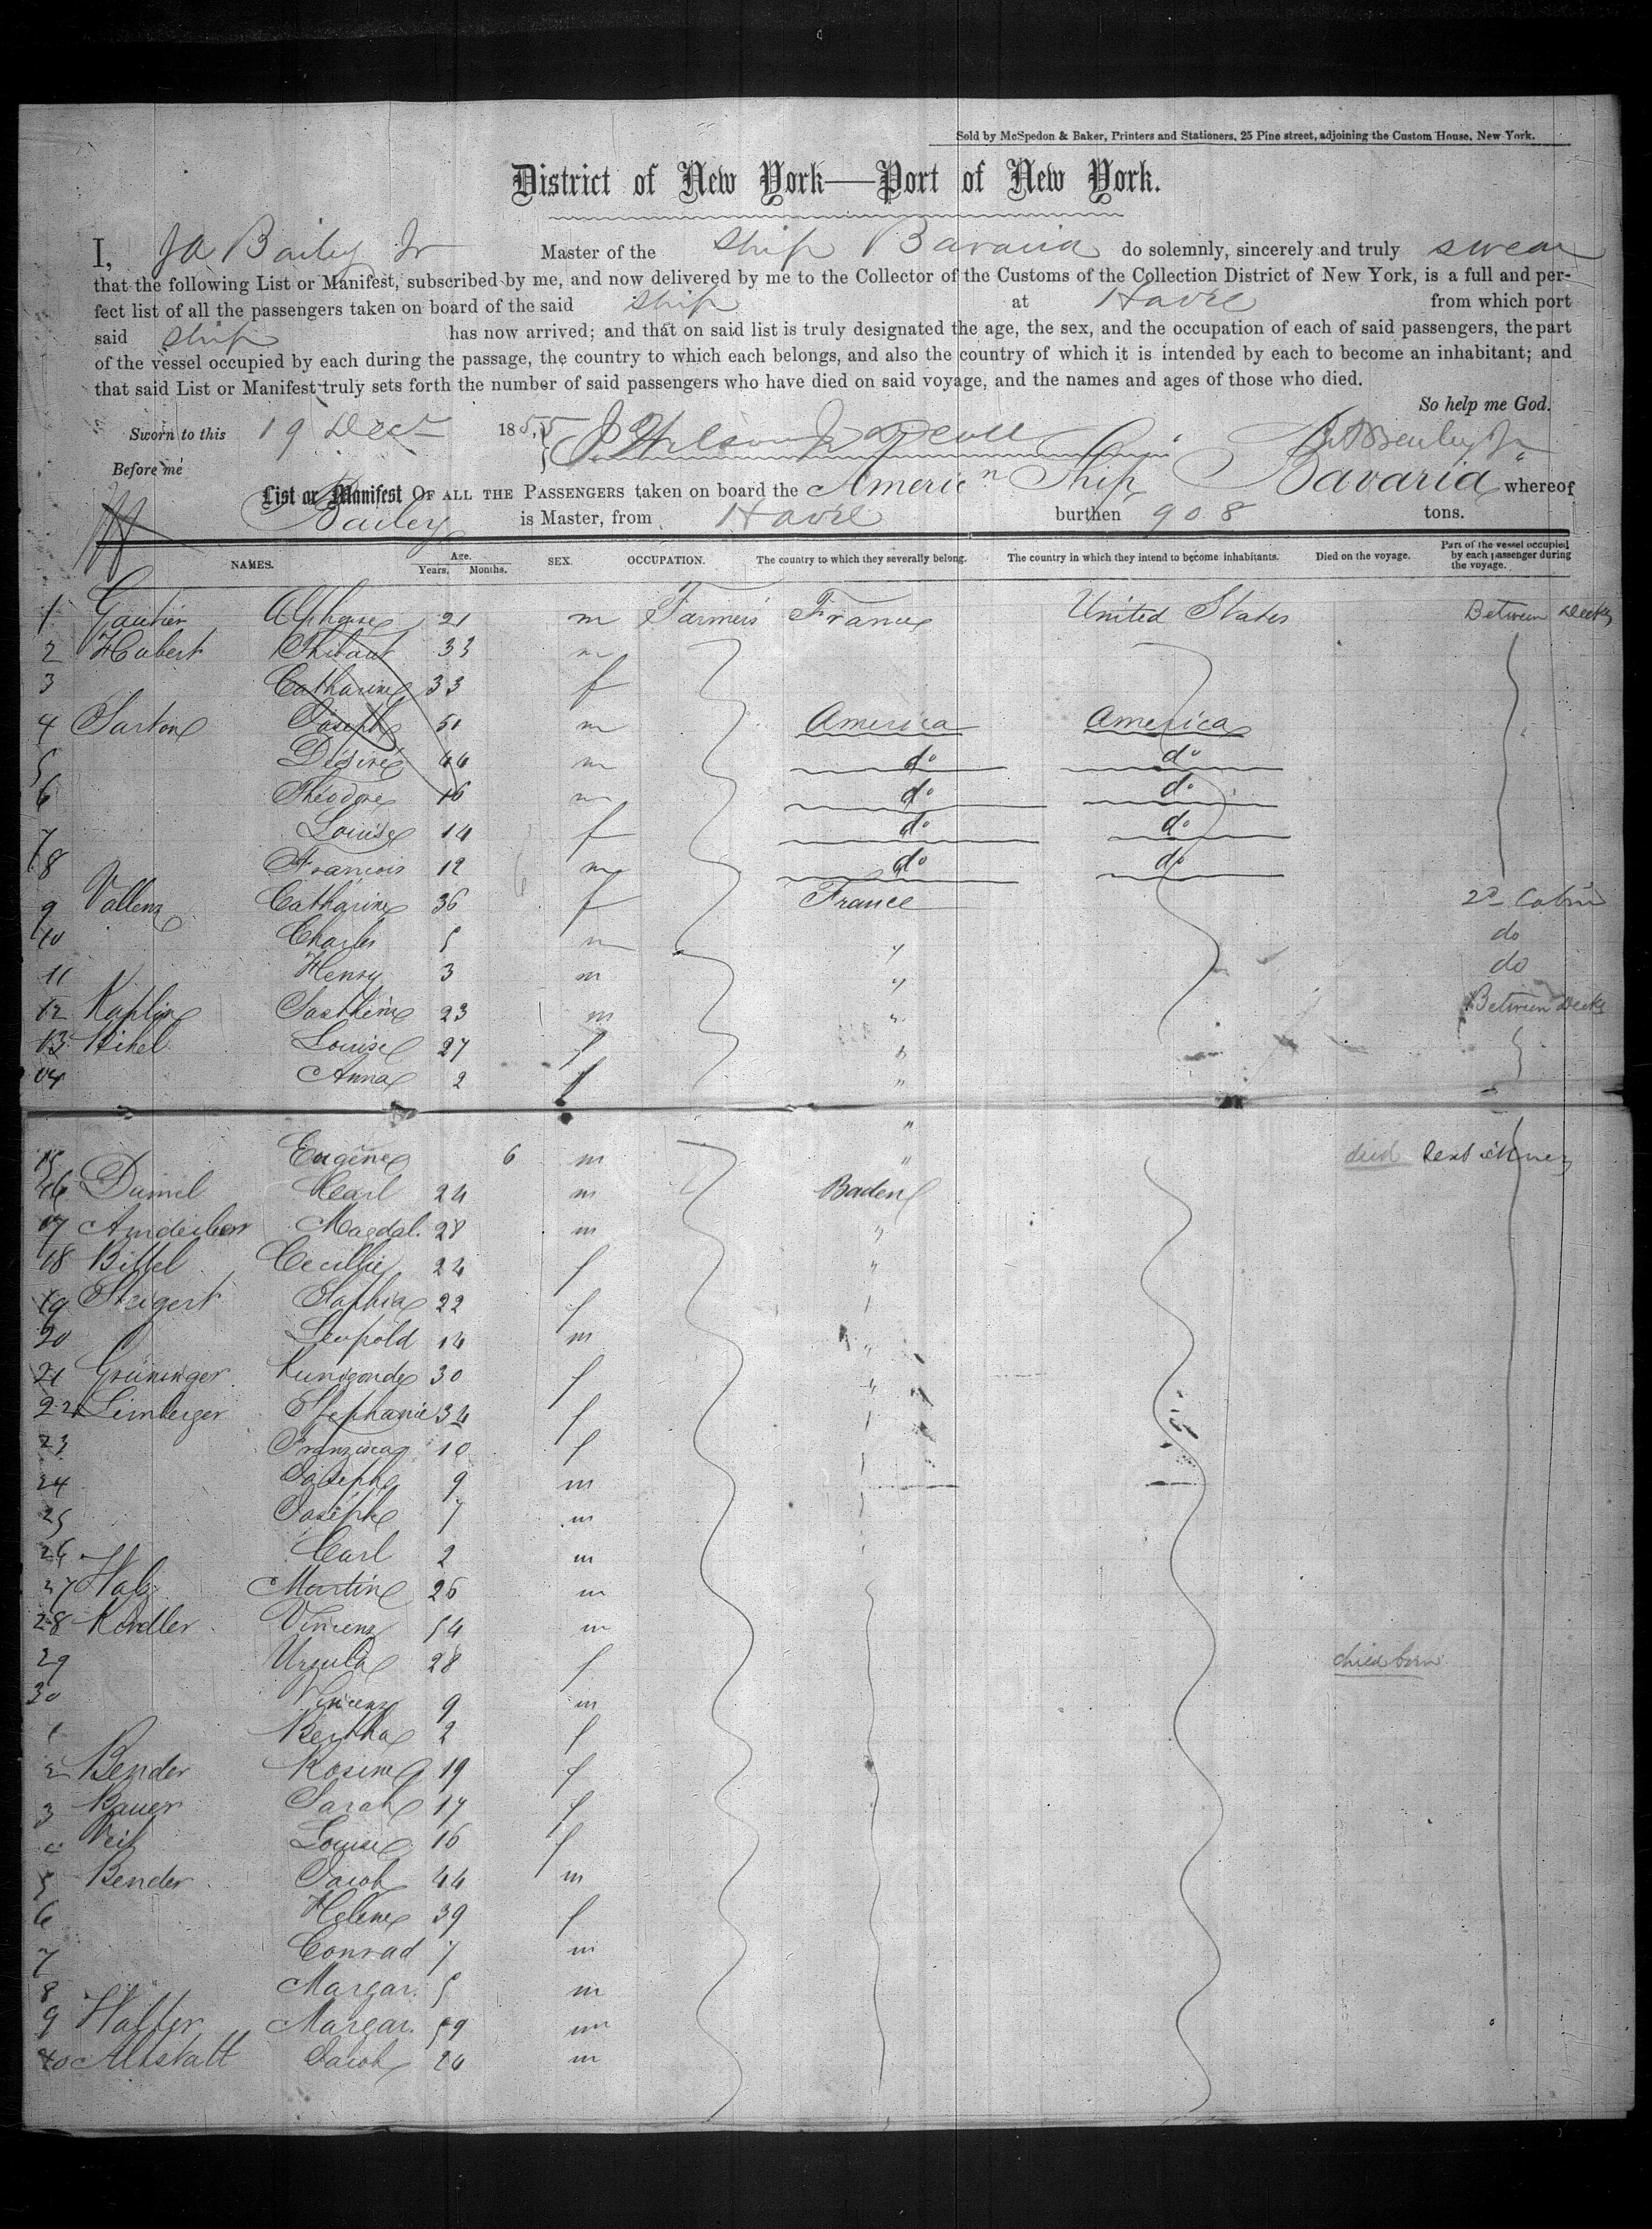 Sold by McSpedon & Baker, Printers and Stationers, 25 Pine street, adjoining the Custom House, New York.
District of New York—Port of New York.
I, J A Bailey Jr Master of the Ship Bavaria do solemnly, sincerely and truly swear
that the following List or Manifest, subscribed by me, and now delivered by me to the Collector of the Customs of the Collection District of New York, is a full and per-
fect list of all the passengers taken on board of the said ship at Havre from which port
said ship has now arrived; and that on said list is truly designated the age, the sex, and the occupation of each of said passengers, the part
of the vessel occupied by each during the passage, the country to which each belongs, and also the country of which it is intended by each to become an inhabitant; and
that said List or Manifest truly sets forth the number of said passengers who have died on said voyage, and the names and ages of those who died.
So help me God.
Sworn to this 19 Decr 1855
Before me
List or Manifest OF ALL THE PASSENGERS taken on board the American Ship Bavaria whereof
Bailey is Master, from Havre burthen 908 tons.
NAMES. Age. Years. Months. SEX. OCCUPATION. The country to which they severally belong. The country in which they intend to become inhabitants. Died on the voyage. Part of the vessel occupied by each passenger during the voyage.
1 Gautier Alphonse 21 m Farmers France United States Between Decks
2 Hubert Thibaut 33 m
3 Catharine 33 f
4 Sarton Joseph 51 m America America
5 Désiré 44 m do do
6 Théodore 16 m do do
7 Louise 14 f do do
8 Francois 12 m do do
9 Catharine 36 f France 2d Cabin
10 Charles 5 m " do
11 Henry 3 m " do
12 23 m " Between Decks
13 Louise 27 f "
14 Anna 2 f "
"
15 Eugène 6 m " died
16 Carl 24 m Baden
17 Magdal. 28 m "
18 Bittel Cecillie 24 f "
19 Steigert Sophia 22 f
20 Leopold 14 m "
21 Grüninger Kunigonde 30 f "
22 Limberger Stephanie 34 f
23 Franzisca 10 f
24 Joseph 9 m
25 Joseph 7 m
26 Carl 2 m
27 Martin 26 m
28 Vincenz 54 m
29 Ursula 28 f child born
30 Vincenz 9 m
1 Bertha 2 f
2 Bender Rosina 19 f
3 Bauer Sarah 17 f
4 Veit Louise 16 f
5 Bender Jacob 44 m
6 Helene 39 f
7 Conrad 7 m
8 Margar. 5 m
9 Walter Margar. 59 m
40 Altstatt Jacob m